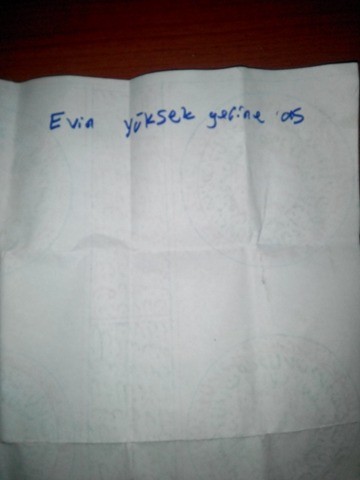 Evin yüksek yerine as